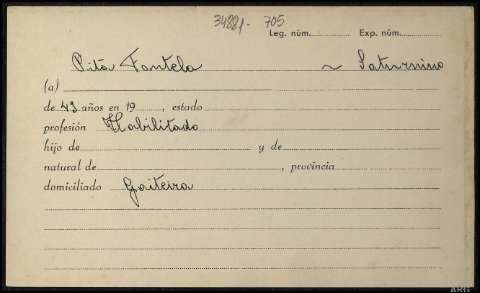 34881 - 705
Leg. núm. Exp. núm.
Pita Fontela ~ Saturnino
(a)
de 43 años en 19 , estado
profesión Habilitado
hijo de y de
natural de , provincia
domiciliado Gaiteira